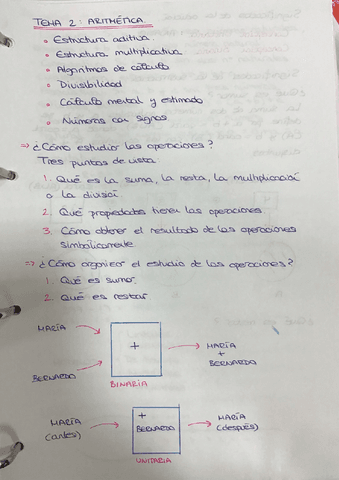 TEMA 2: ARITMÉTICA.
• Estructura aditiva
• Estructura multiplicativa
• Algoritmos de cálculo
• Divisibilidad
• Cálculo mental y estimado
• Números con signos
⇒ ¿Cómo estudiar las operaciones?
Tres puntos de vista
1. Qué es la suma, la resta, la multiplicación
o la división
2. Qué propiedades tienen las operaciones
3. Cómo obtener el resultado de las operaciones
simbólicamente
⇒ ¿Cómo organizar el estudio de las operaciones?
1. Qué es sumar
2. Qué es restar
MARÍA
+
MARÍA
+
BERNARDO
BERNARDO
BINARIA
MARÍA
(antes)
+
BERNARDO
MARÍA
(después)
UNITARIA